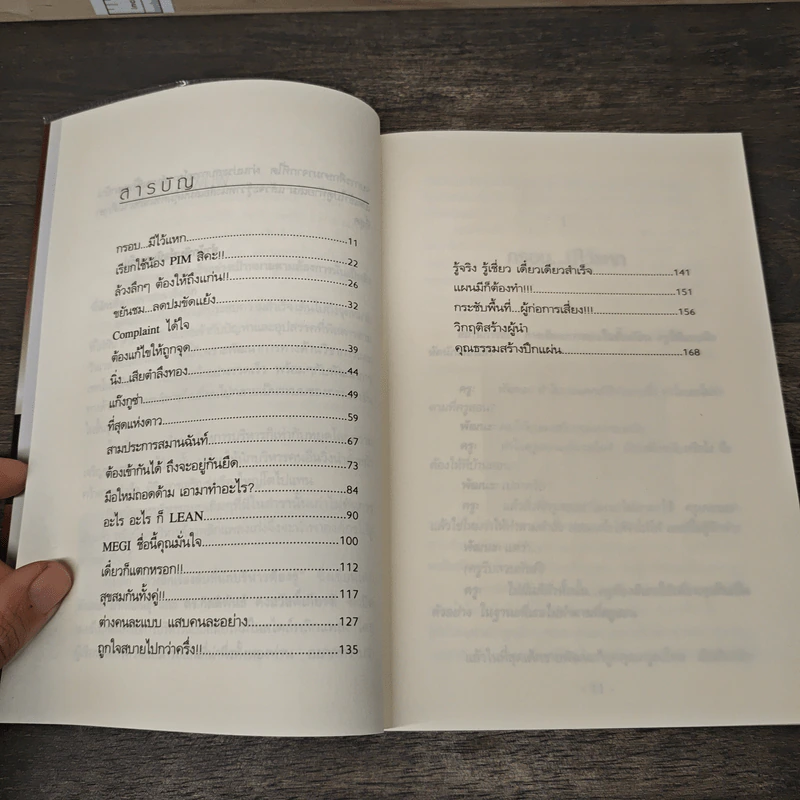 สารบัญ
กรอบ...มีไว้แหก...11
เรียกใช้น้อง PIM สิคะ!!...22
ล้วงลึกๆ ต้องให้ถึงแก่น!!...26
ขยันชม...ลดปมขัดแย้ง...32
Complaint ได้ใจ
ต้องแก้ไขให้ถูกจุด...39
นิ่ง...เสียตำลึงทอง...44
แก๊งกูซ่า...49
ที่สุดแห่งดาว...59
สามประการสมานฉันท์...67
ต้องเข้ากันได้ ถึงจะอยู่กันยืด...73
มือใหม่ถอดด้าม เอามาทำอะไร?...84
อะไร อะไร ก็ LEAN...90
MEGI ชื่อนี้คุณมั่นใจ...100
เดี๋ยวก็แตกหรอก!!...112
สุขสมกันทั้งคู่!!...117
ต่างคนละแบบ แสบคนละอย่าง...127
ถูกใจสบายไปกว่าครึ่ง!!...135
รู้จริง รู้เชี่ยว เดี๋ยวเดียวสำเร็จ...141
แผนมีก็ต้องทำ!!!...151
กระชับพื้นที่...ผู้ก่อการเสี่ยง!!!...156
วิกฤติสร้างผู้นำ
คุณธรรมสร้างปึกแผ่น...168